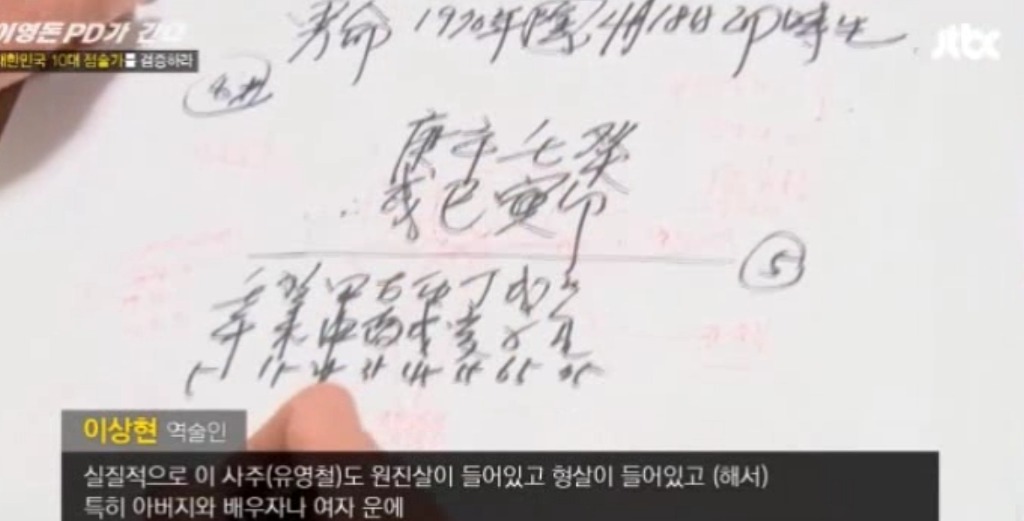 이영돈PD가 간다
대한민국 10대 점술가를 검증하라
jtbc
命 1970年 陰 4月18日 卯時生
庚辛壬癸
戌巳寅卯
5
壬癸甲乙丙丁戊己
午未申酉戌亥子丑
5 15 25 35 45 55 65 75
이상현 역술인
실질적으로 이 사주(유영철)도 원진살이 들어있고 형살이 들어있고 (해서)
특히 아버지와 배우자나 여자 운에